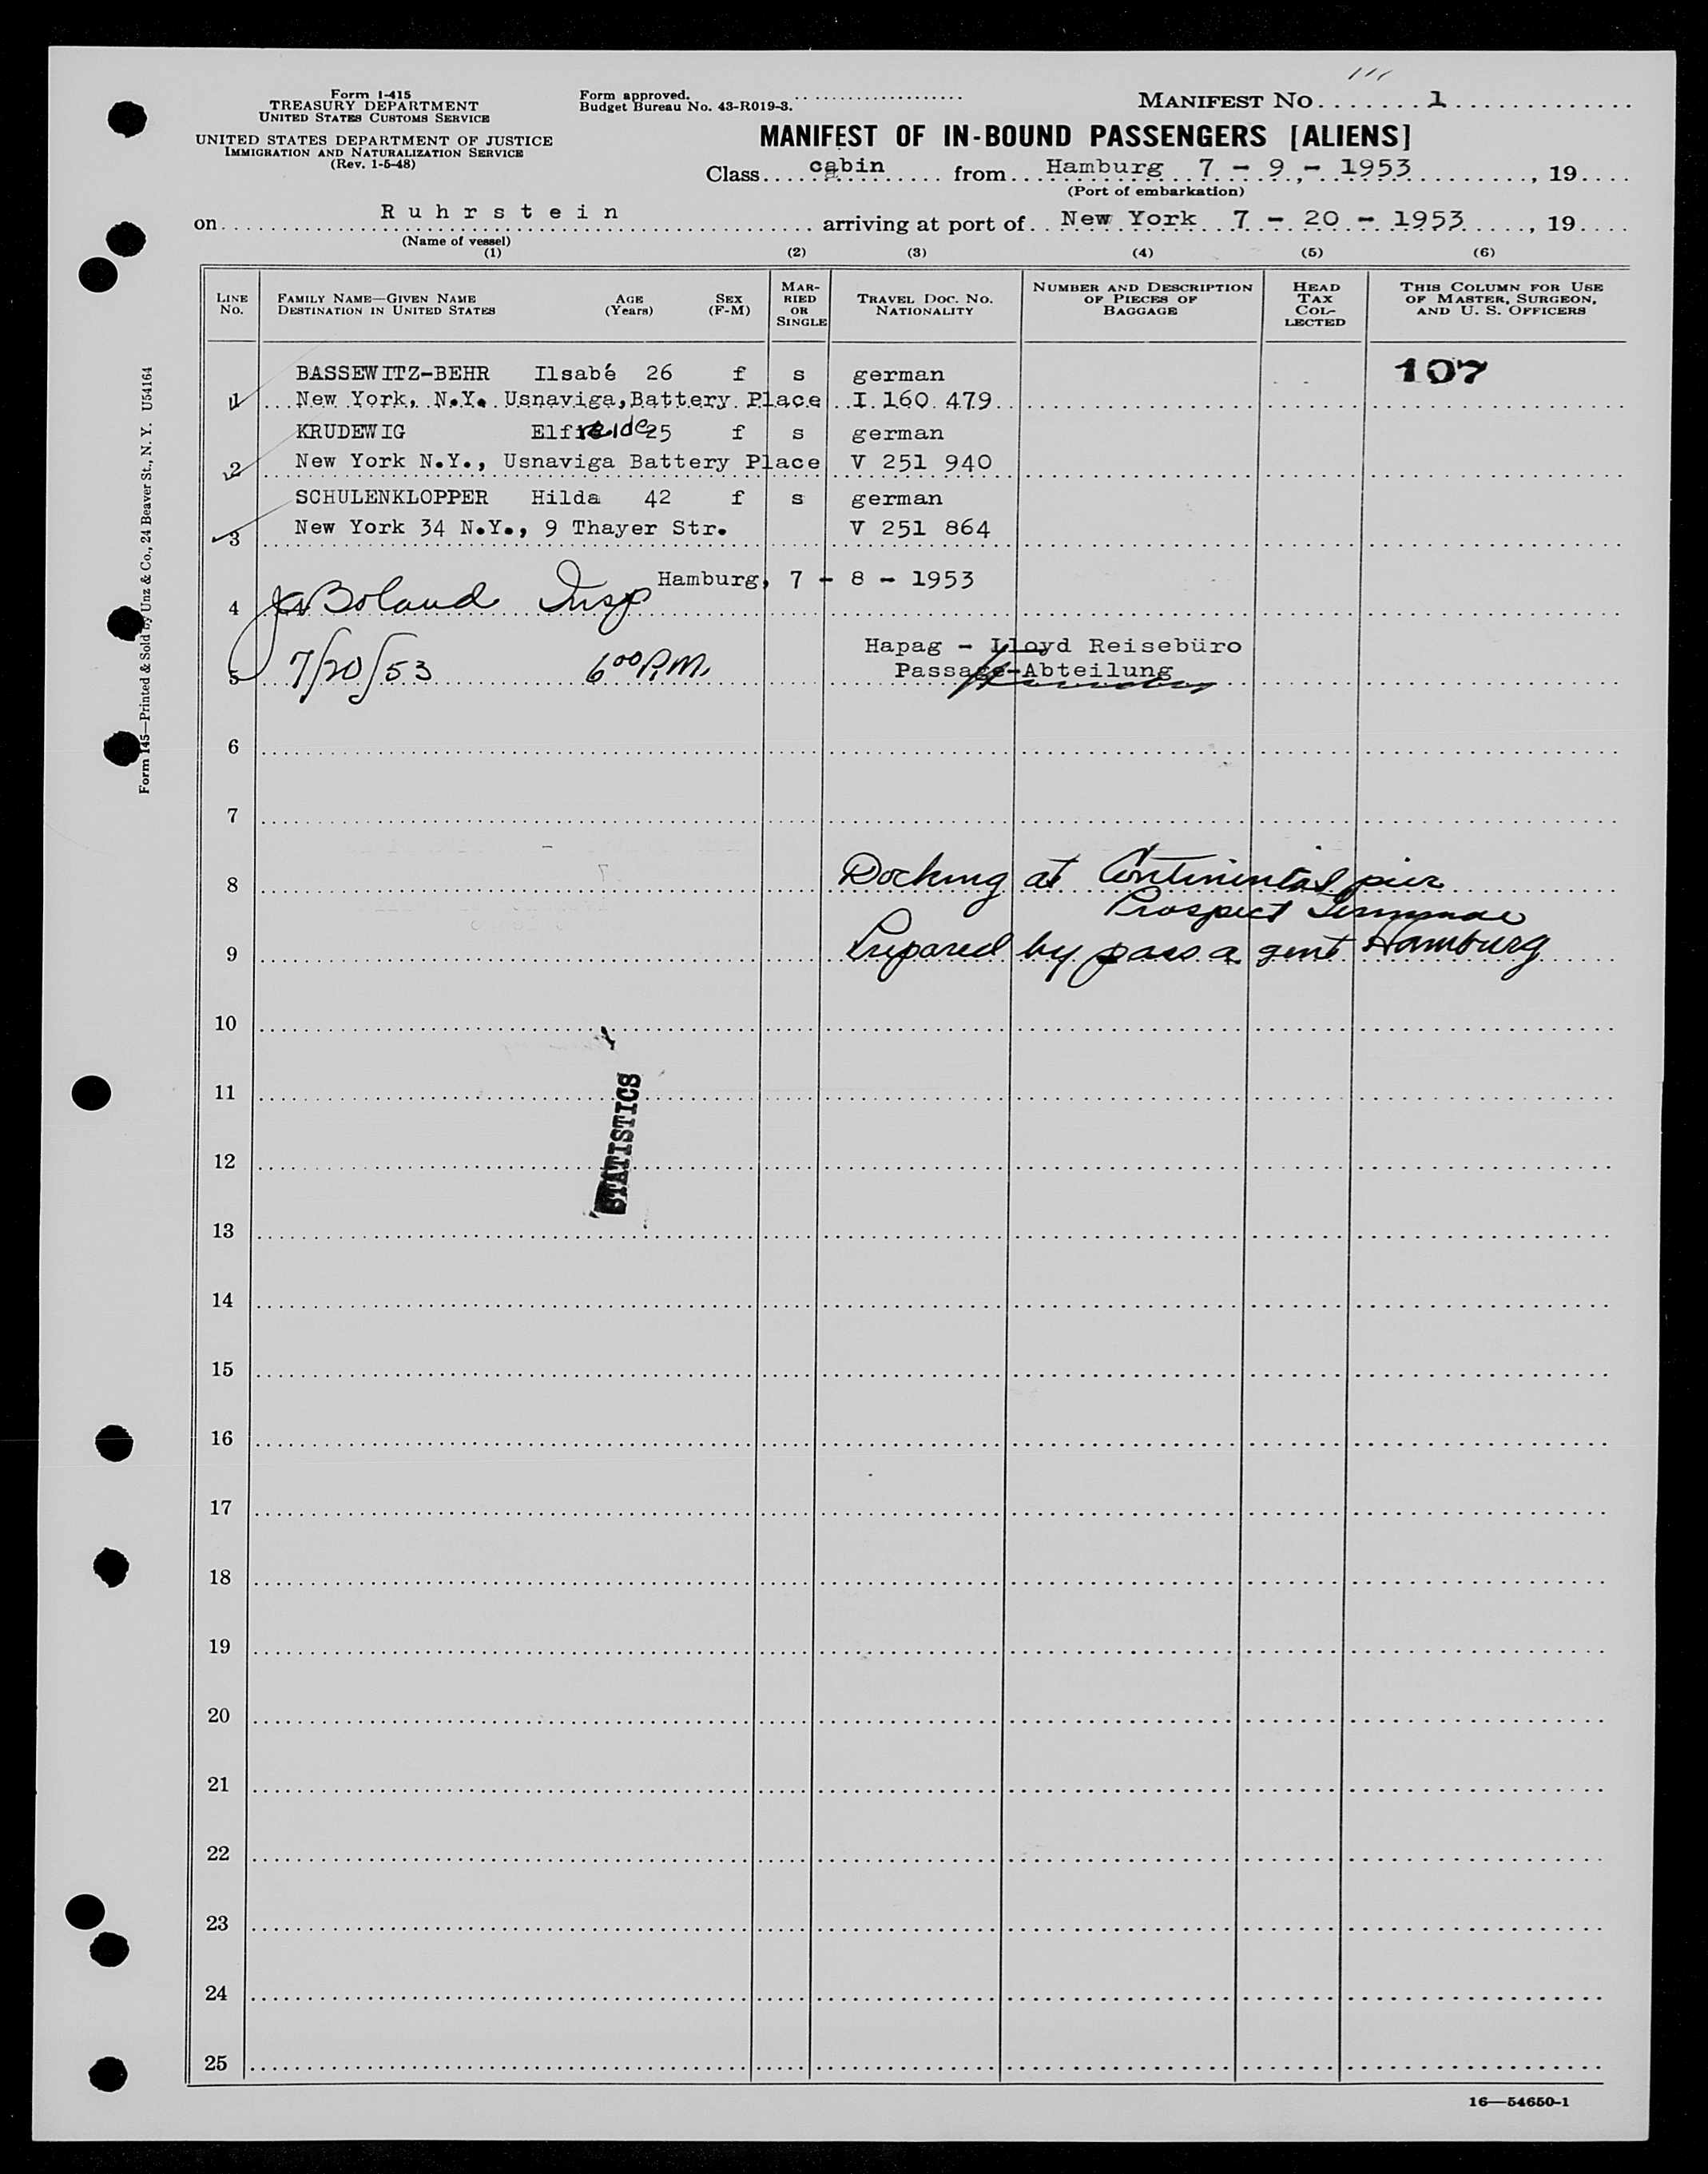 Form I-415
TREASURY DEPARTMENT
UNITED STATES CUSTOMS SERVICE
UNITED STATES DEPARTMENT OF JUSTICE
IMMIGRATION AND NATURALIZATION SERVICE
(Rev. 1-5-48)
Form approved.
Budget Bureau No. 43-R019-3.
MANIFEST NO. 1
MANIFEST OF IN-BOUND PASSENGERS [ALIENS]
Class cabin from Hamburg 7 - 9 - 1953, 19
(Port of embarkation)
on Ruhrstein arriving at port of New York 7 - 20 - 1953, 19
(Name of vessel)
(1) (2) (3) (4) (5) (6)
LINE NO. FAMILY NAME—GIVEN NAME DESTINATION IN UNITED STATES AGE (Years) SEX (F-M) MARRIED OR SINGLE TRAVEL DOC. NO. NATIONALITY NUMBER AND DESCRIPTION OF PIECES OF BAGGAGE HEAD TAX COLLECTED THIS COLUMN FOR USE OF MASTER, SURGEON, AND U. S. OFFICERS
BASSEWITZ-BEHR Ilsabé 26 f s german 107
1 New York, N.Y. Usnaviga, Battery Place I 160 479
KRUDEWIG Elfreide 25 f s german
2 New York N.Y., Usnaviga Battery Place V 251 940
SCHULENKLOPPER Hilda 42 f s german
3 New York 34 N.Y., 9 Thayer Str. V 251 864
Hamburg, 7 - 8 - 1953
4 Boland Insp
Hapag - Lloyd Reisebüro
5 7/20/53 6 00 P.M. Passage-Abteilung
6
7
8 Docking at Continental pier
Prospect
9 Prepared by pass agent Hamburg
10
11
STATISTICS
12
13
14
15
16
17
18
19
20
21
22
23
24
25
16—54650-1
Form 145—Printed & Sold by Unz & Co., 24 Beaver St., N. Y. U54164